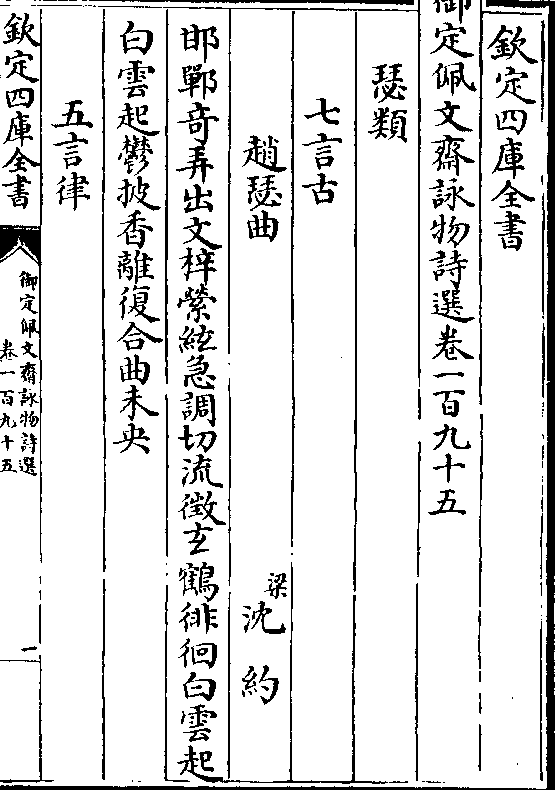 欽定四庫全書
御定佩文齋詠物詩選卷一百九十五
瑟類
七言古
趙瑟曲 梁 沈約
邯鄲奇弄出文梓縈絃急調切流徵玄鶴徘徊白雲起
白雲起鬱披香離復合曲未央
五言律
欽定四庫全書
御定佩文齋詠物詩選
卷一百九十五
一